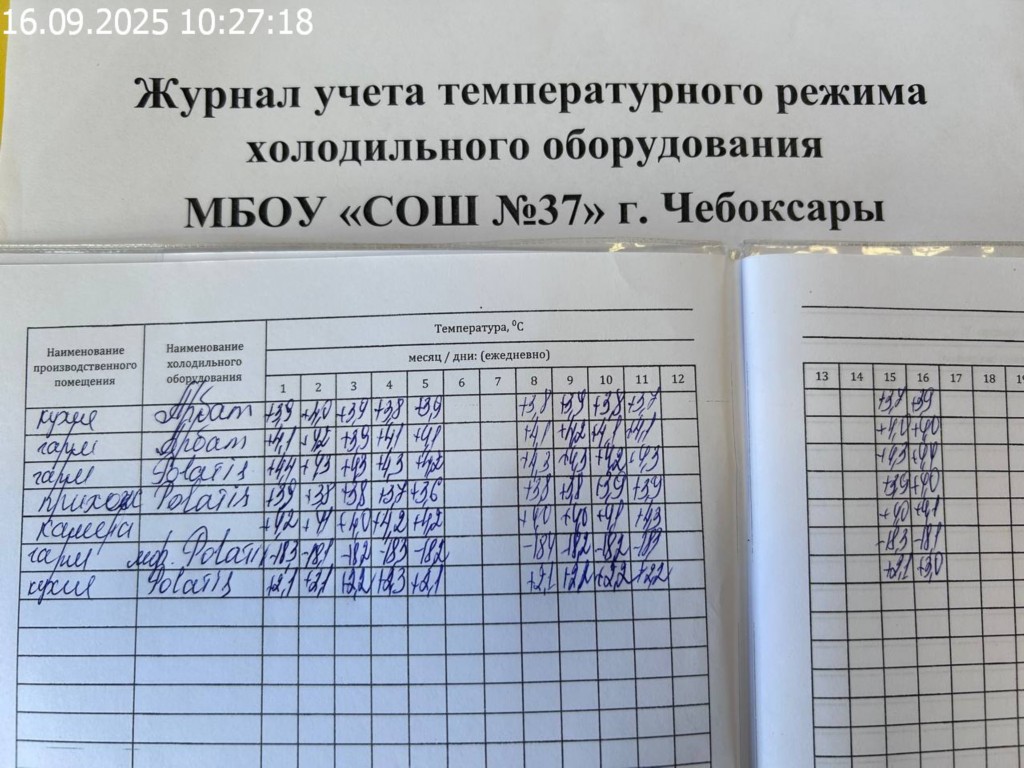 16.09.2025 10:27:18
Журнал учета температурного режима
холодильного оборудования
МБОУ «СОШ №37» г. Чебоксары
Температура, ⁰С
Наименование производственного помещения
Наименование холодильного оборудования
месяц / дни: (ежедневно)
1 2 3 4 5 6 7 8 9 10 11 12 13 14 15 16 17 18
кухня +3,9 +4,0 +3,9 +3,8 +3,9 +3,8 +3,9 +3,8 +3,7 +3,7 +3,9
+4,1 +4,2 +3,9 +4,1 +4,1 +4,1 +4,2 +4,1 +4,1 +4,0 +4,0
Polatis +4,4 +4,3 +4,3 +4,3 +4,2 +4,3 +4,3 +4,2 +4,3 +4,3 +4,4
Polatis +3,9 +3,8 +3,8 +3,7 +3,6 +3,8 +3,8 +3,9 +3,9 +3,9 +4,0
камера +4,2 +4,1 +4,0 +4,2 +4,2 +4,0 +4,0 +4,1 +4,3 +4,0 +4,1
Polatis -18,3 -18,1 -18,2 -18,3 -18,2 -18,4 -18,2 -18,2 -18,3 -18,1
кухня Polatis +2,1 +2,1 +2,2 +2,3 +2,1 +2,1 +2,2 +2,2 +2,2 +2,1 +3,0